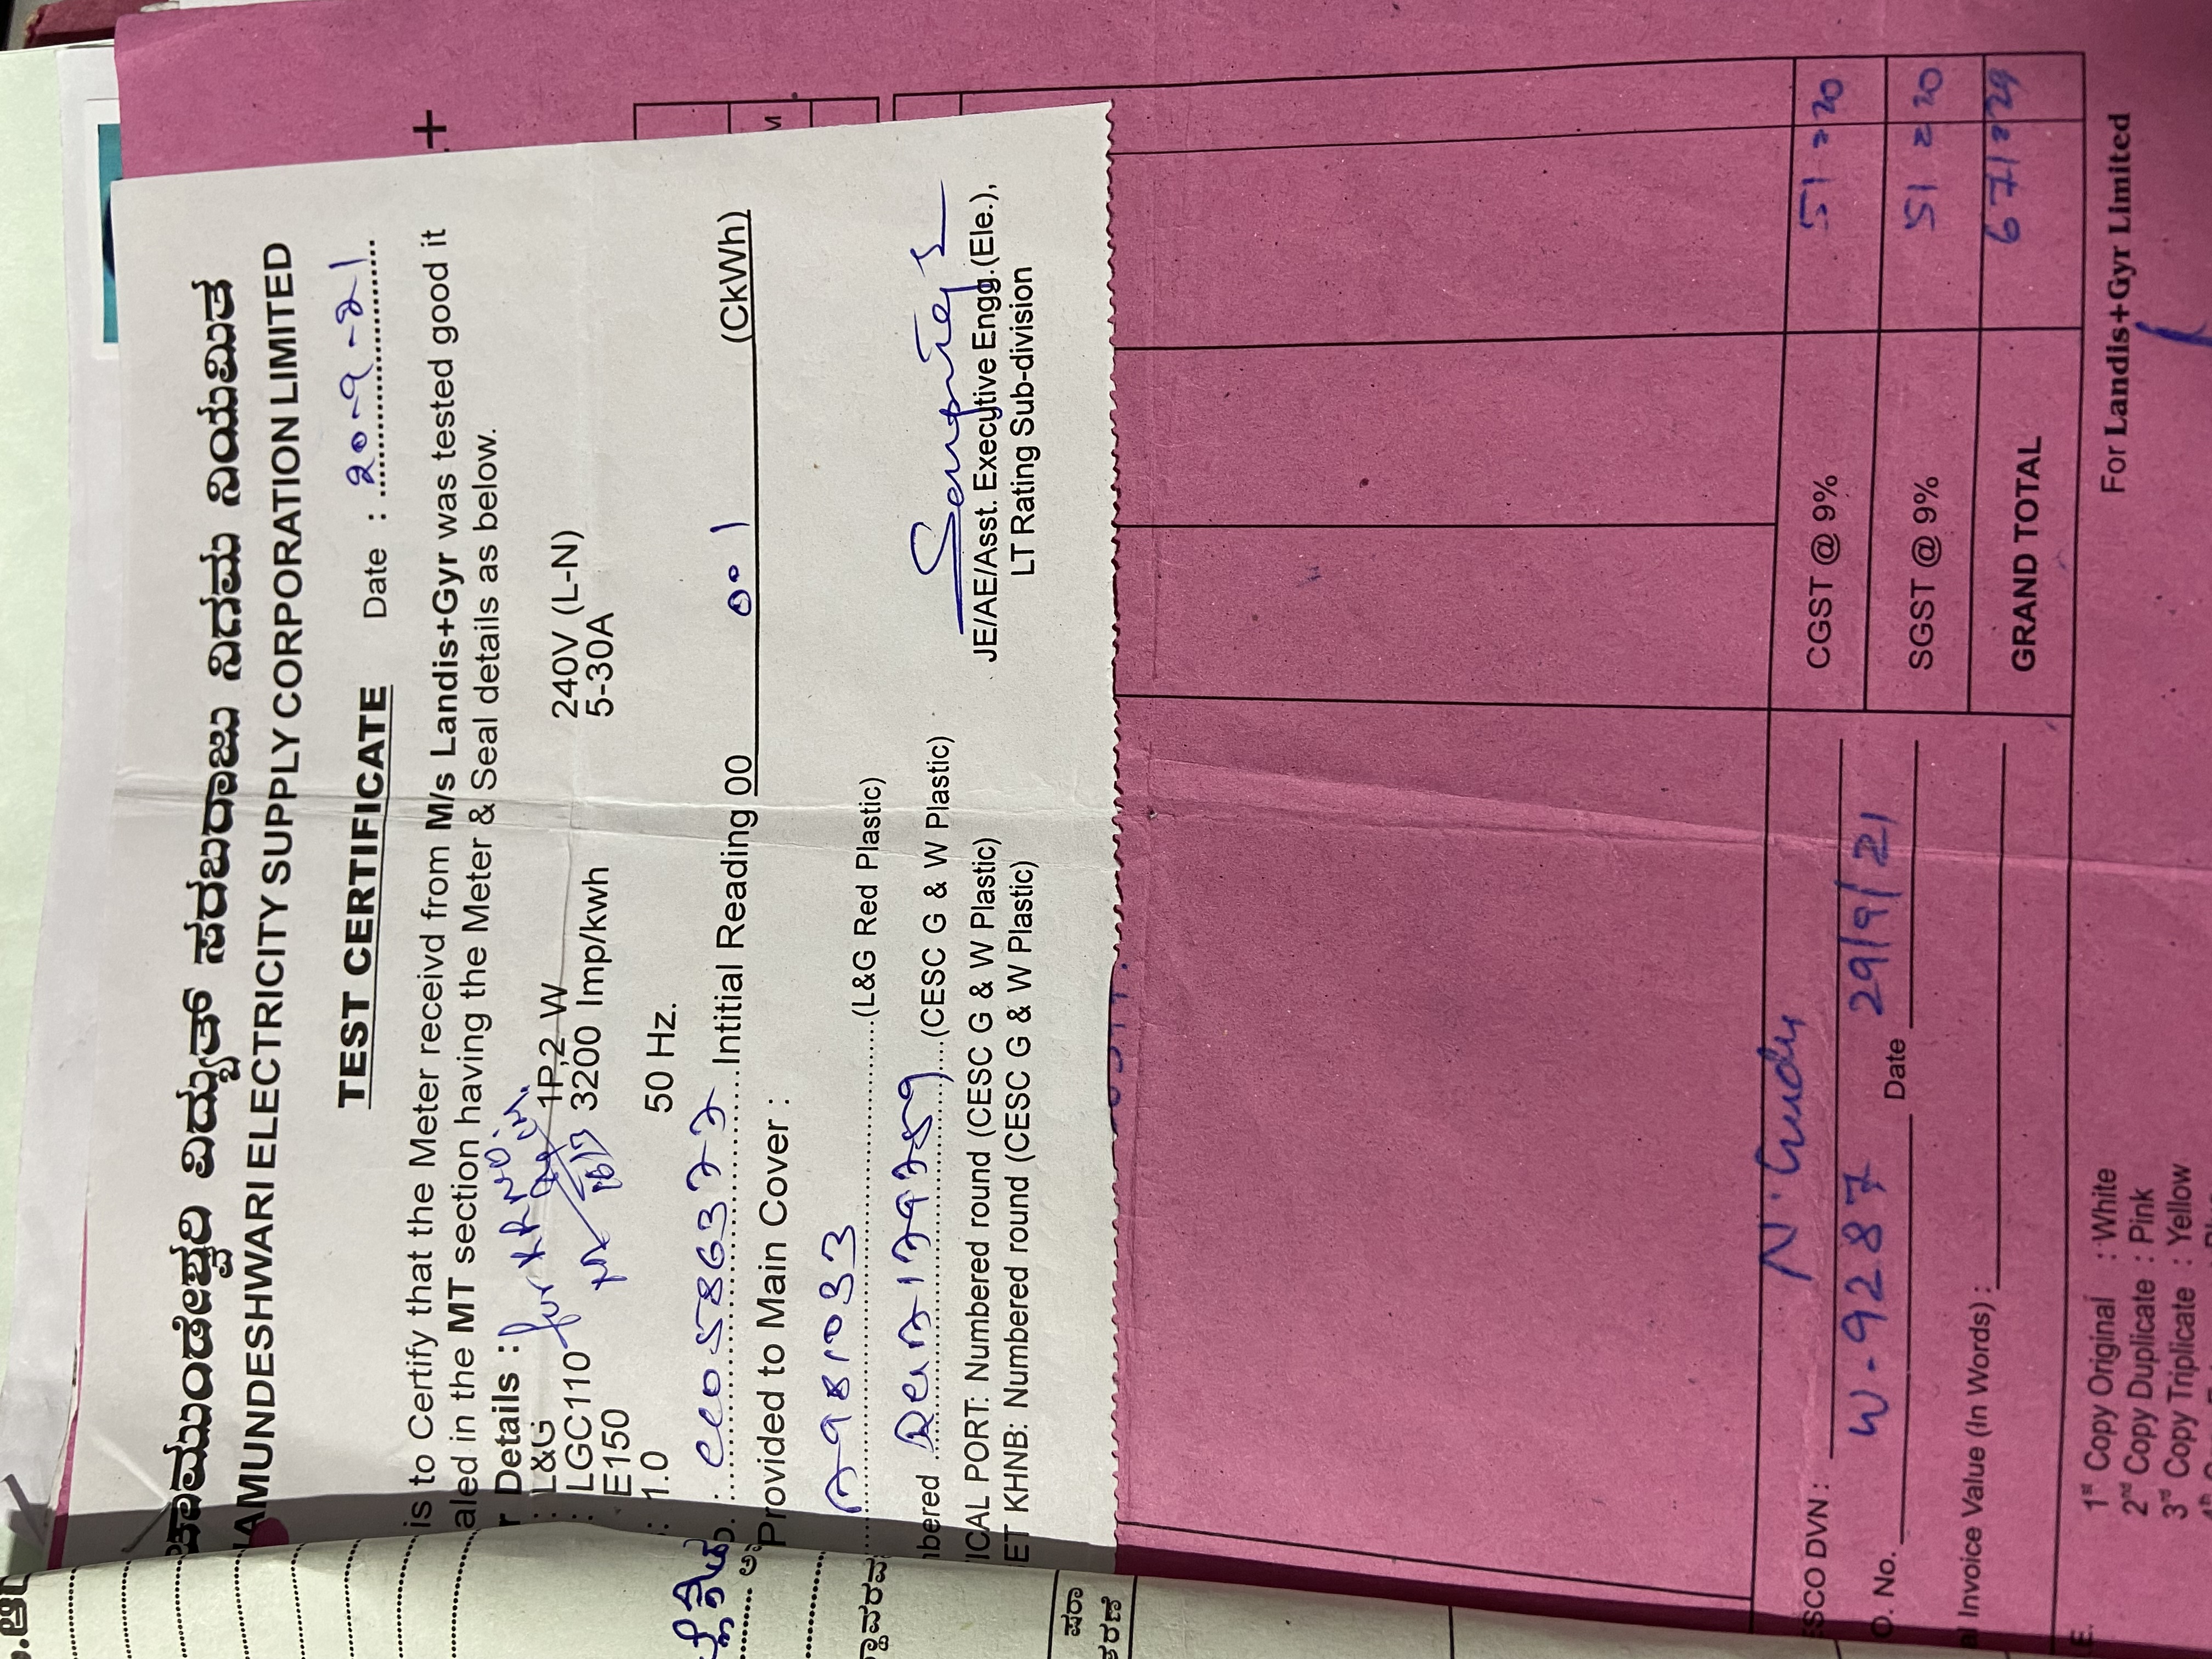 ಚಾಮುಂಡೇಶ್ವರಿ ವಿದ್ಯುತ್ ಸರಬರಾಜು ನಿಗಮ ನಿಯಮಿತ
AMUNDESHWARI ELECTRICITY SUPPLY CORPORATION LIMITED
TEST CERTIFICATE Date : 20-9-21
is to Certify that the Meter receivd from M/s Landis+Gyr was tested good it
aled in the MT section having the Meter & Seal details as below.
r Details :
: L&G 1P,2 W 240V (L-N)
: LGC110 3200 Imp/kwh 5-30A
E150
: 1.0 50 Hz.
Intitial Reading 00 001 (CkWh)
Provided to Main Cover :
A981033 (L&G Red Plastic)
nbered (CESC G & W Plastic)
ICAL PORT: Numbered round (CESC G & W Plastic)
ET KHNB: Numbered round (CESC G & W Plastic)
JE/AE/Asst. Executive Engg.(Ele.),
LT Rating Sub-division
SCO DVN :
CGST @ 9% 51 = 20
O. No. W-9287 Date 29/9/21
SGST @ 9% 51 = 20
Invoice Value (In Words) :
GRAND TOTAL 671 = 29
For Landis+Gyr Limited
1st Copy Original : White
2nd Copy Duplicate : Pink
3rd Copy Triplicate : Yellow